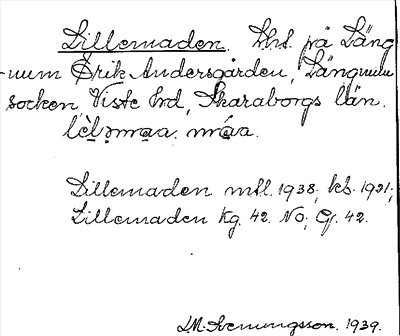 Lillemaden. Lht. på Läng
-num Erik Andersgården, Längnum
socken, Viste hd, Skaraborgs län.
Lillemaden mtl. 1938, kb. 1921;
Lillemaden Kg. 42. No; Gf. 42.
I.M. Svenungsson. 1939.